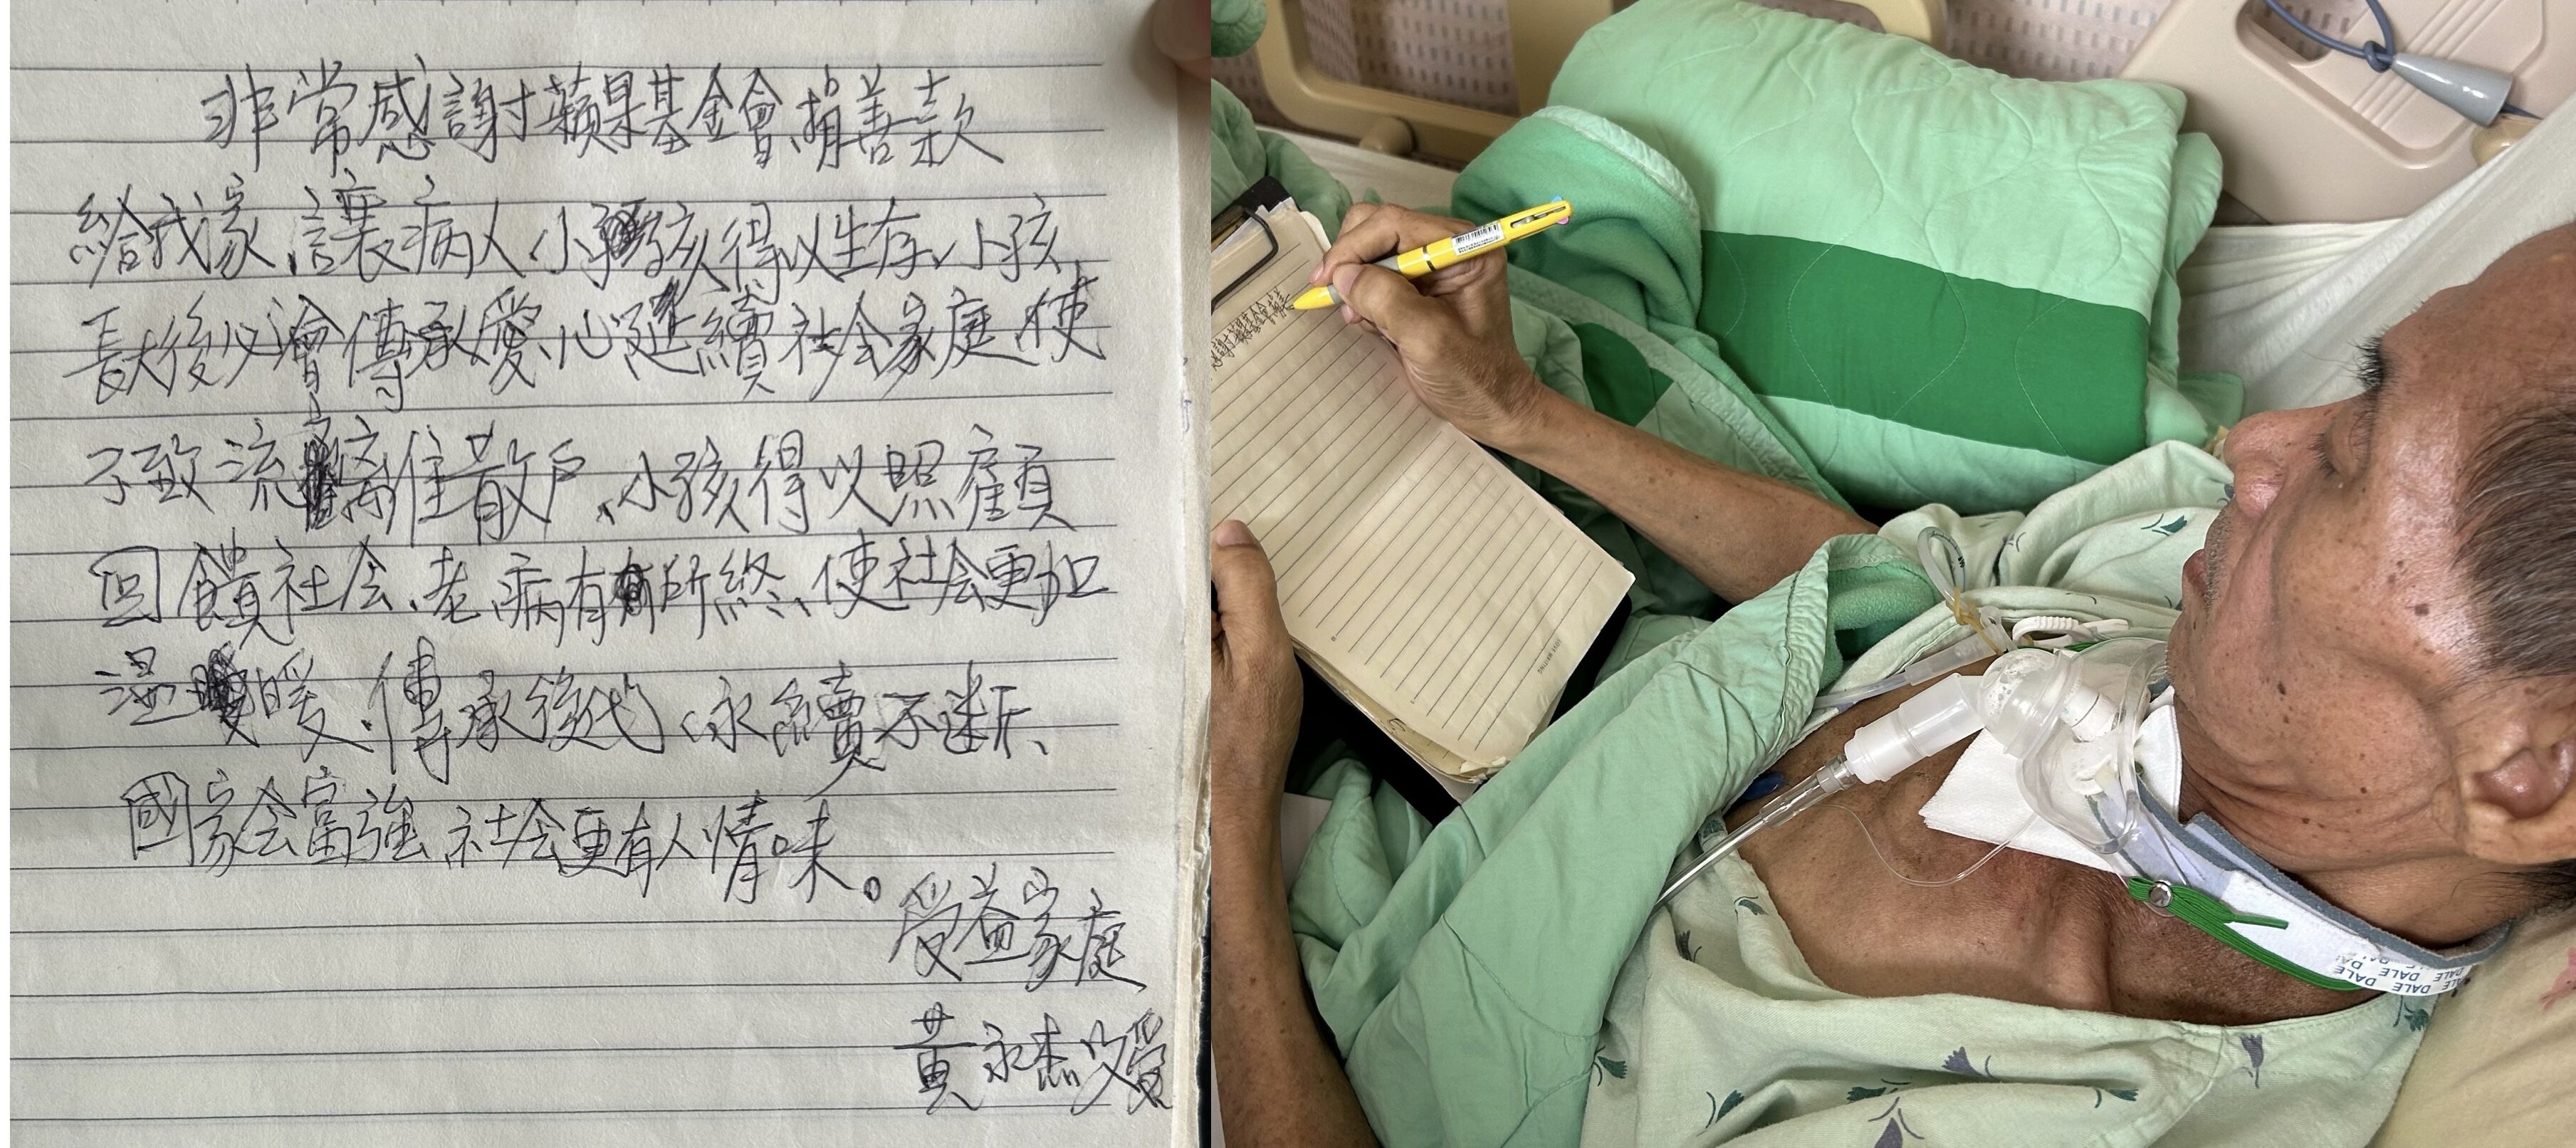 非常感謝蘋果基金會捐善款
給我家、讓病人小孩得以生存、小孩
長大後必會傳承愛心延續社会家庭、使
不致流離散戶、小孩得以照顧
回饋社会、老病有所終、使社会更加
溫暖、傳承後代、永續不断、
國家会富強、社会更有人情味。
受益家庭
黃永杰
DALE DALE DALE